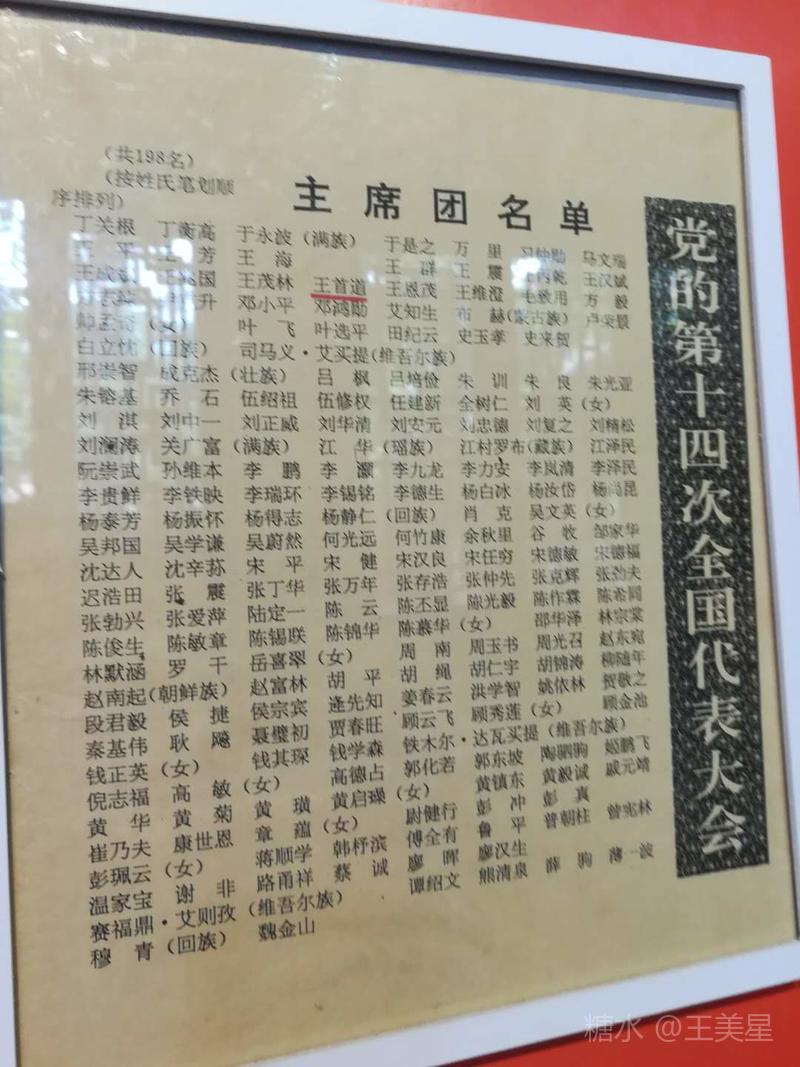 党的第十四次全国代表大会
主席团名单
（共198名）
（按姓氏笔划顺
序排列）
丁关根 丁衡高 于永波（满族） 于是之 万里 习仲勋 马文瑞
王平 王芳 王海 王群 王震 王丙乾 王汉斌
王成斌 王兆国 王茂林 王首道 王恩茂 王维澄 毛致用 方毅
升 邓小平 邓鸿勋 艾知生 布赫（蒙古族） 卢荣景
帅孟奇（女） 叶飞 叶选平 田纪云 史玉孝 史来贺
白立忱（回族） 司马义·艾买提（维吾尔族）
邢崇智 成克杰（壮族） 吕枫 吕培俭 朱训 朱良 朱光亚
朱镕基 乔石 伍绍祖 伍修权 任建新 全树仁 刘英（女）
刘淇 刘中一 刘正威 刘华清 刘安元 刘忠德 刘复之 刘精松
刘澜涛 关广富（满族） 江华（瑶族） 江村罗布（藏族） 江泽民
阮崇武 孙维本 李鹏 李灏 李九龙 李力安 李岚清 李泽民
李贵鲜 李铁映 李瑞环 李锡铭 李德生 杨白冰 杨汝岱 杨尚昆
杨泰芳 杨振怀 杨得志 杨静仁（回族） 肖克 吴文英（女）
吴邦国 吴学谦 吴蔚然 何光远 何竹康 余秋里 谷牧 邹家华
沈达人 沈辛荪 宋平 宋健 宋汉良 宋任穷 宋德敏 宋德福
迟浩田 张震 张丁华 张万年 张存浩 张仲先 张克辉 张劲夫
张勃兴 张爱萍 陆定一 陈云 陈丕显 陈光毅 陈作霖 陈希同
陈俊生 陈敏章 陈锡联 陈锦华 陈慕华（女） 邵华泽 林宗棠
林默涵 罗干 岳喜翠（女） 周南 周玉书 周光召 赵东宛
赵南起（朝鲜族） 赵富林 胡平 胡绳 胡仁宇 胡锦涛 柳随年
段君毅 侯捷 侯宗宾 逄先知 姜春云 洪学智 姚依林 贺敬之
秦基伟 耿飚 聂璧初 贾春旺 顾云飞 顾秀莲（女） 顾金池
钱正英（女） 钱其琛 钱学森 铁木尔·达瓦买提（维吾尔族）
倪志福 高敏（女） 高德占 郭化若 郭东坡 陶驷驹 姬鹏飞
黄华 黄菊 黄璜 黄启璪（女） 黄镇东 黄毅诚 戚元靖
崔乃夫 康世恩 章蕴（女） 尉健行 彭冲 彭真
彭珮云（女） 蒋顺学 韩杼滨 傅全有 鲁平 普朝柱 曾宪林
温家宝 谢非 路甬祥 蔡诚 廖晖 廖汉生 薛驹 薄一波
赛福鼎·艾则孜（维吾尔族） 谭绍文 熊清泉
穆青（回族） 魏金山
糖水 @王美星